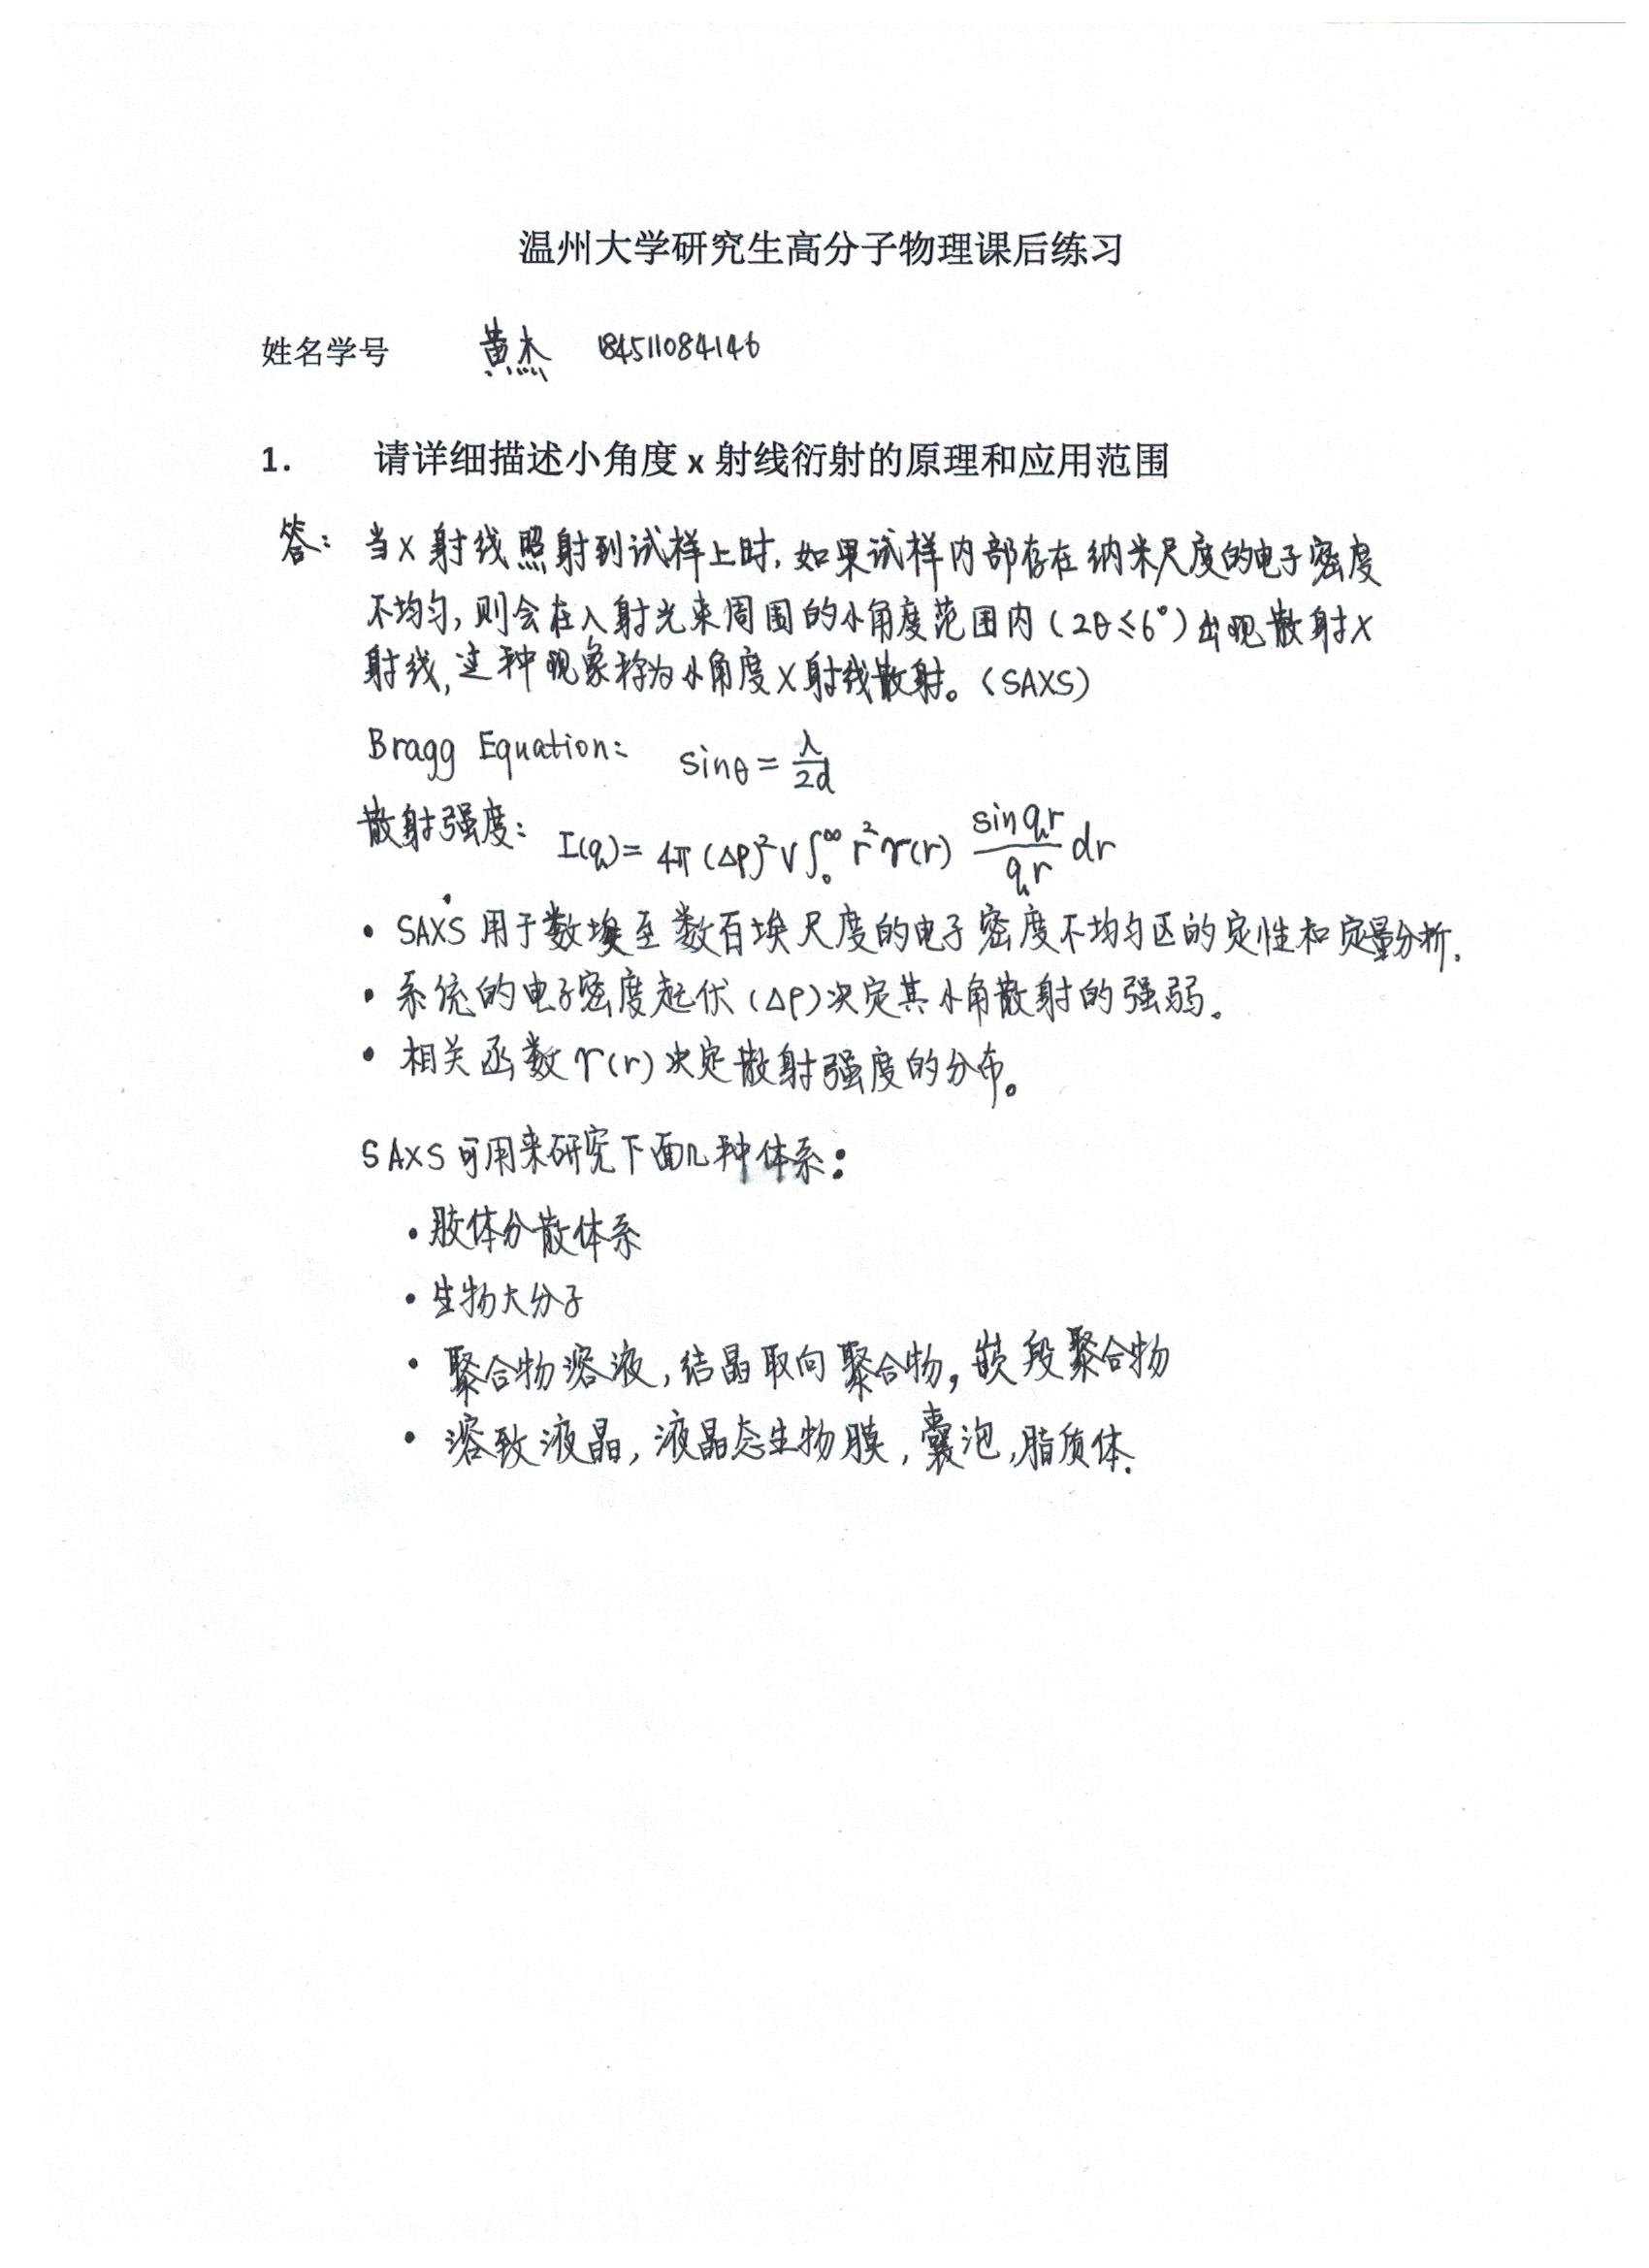 温州大学研究生高分子物理课后练习
姓名学号 黄杰 18451084146
1. 请详细描述小角度 x 射线衍射的原理和应用范围
答: 当X射线照射到试样上时,如果试样内部存在纳米尺度的电子密度
不均匀,则会在入射光束周围的小角度范围内(2θ≤6°)出现散射X
射线,这种现象称为小角度X射线散射。(SAXS)
Bragg Equation: sinθ = λ/2d
散射强度: I(q) = 4π (Δρ)² V ∫₀^∞ r² γ(r) (sin qr)/(qr) dr
• SAXS用于数埃至数百埃尺度的电子密度不均匀区的定性和定量分析.
• 系统的电子密度起伏(Δρ)决定其小角散射的强弱。
• 相关函数γ(r)决定散射强度的分布。
SAXS可用来研究下面几种体系:
• 胶体分散体系
• 生物大分子
• 聚合物溶液,结晶取向聚合物,嵌段聚合物
• 溶致液晶,液晶态生物膜,囊泡,脂质体.